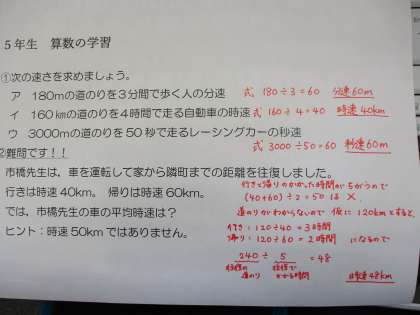 5年生　算数の学習
①次の速さを求めましょう。
ア　180mの道のりを3分間で歩く人の分速　式 180÷3=60　分速60m
イ　160kmの道のりを4時間で走る自動車の時速　式 160÷4=40　時速40km
ウ　3000mの道のりを50秒で走るレーシングカーの秒速
式 3000÷50=60　秒速60m
②難問です！！
市橋先生は、車を運転して家から隣町までの距離を往復しました。
行きと帰りのかかった時間がちがうので
行きは時速40km。　帰りは時速60km。
(40+60)÷2=50は×
では、市橋先生の車の平均時速は？
道のりがわからないので 仮に120kmとすると、
ヒント：時速50kmではありません。
行き：120÷40=3時間
帰り：120÷60=2時間　になるので
240÷5=48
往復の道のり　往復でかかる時間
時速48km